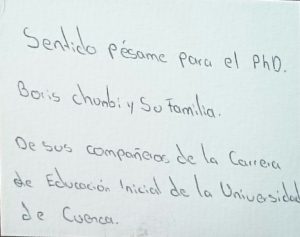 Sentido pésame para el PhD.
Boris chumbi y Su familia.
De sus compañeros de la Carrera
de Educación Inicial de la Universidad
de Cuenca.